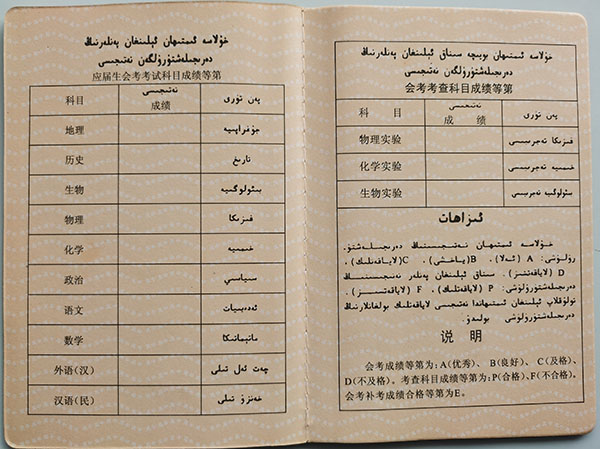 خۇلاسە ئىمتىھان ئېلىنغان پەنلەرنىڭ
دەرىجىلەشتۈرۈلگەن نەتىجىسى
应届生会考考试科目成绩等第
科目 نەتىجىسى 成绩 پەن تۈرى
地理 جۇغراپىيە
历史 تارىخ
生物 بىئولوگىيە
物理 فىزىكا
化学 خىمىيە
政治 سىياسىي
语文 ئەدەبىيات
数学 ماتېماتىكا
外语(汉) چەت ئەل تىلى
汉语(民) خەنزۇ تىلى
خۇلاسە ئىمتىھان بويىچە سىناق ئېلىنغان پەنلەرنىڭ
دەرىجىلەشتۈرۈلگەن نەتىجىسى
会考考查科目成绩等第
科 目 نەتىجىسى 成 绩 پەن تۈرى
物理实验 فىزىكا تەجرىبىسى
化学实验 خىمىيە تەجرىبىسى
生物实验 بىئولوگىيە تەجرىبىسى
ئىزاھات
خۇلاسە ئىمتىھان نەتىجىسىنىڭ دەرىجىلەشتۈ-
رۈلۈشى: A (ئەلا)، B (ياخشى)، C (لاياقەتلىك)،
D (لاياقەتسىز). سىناق ئېلىنغان پەنلەر نەتىجىسىنىڭ
دەرىجىلەشتۈرۈلۈشى: P (لاياقەتلىك)، F (لاياقەتسىز).
تولۇقلاپ ئېلىنغان ئىمتىھاندا نەتىجىسى لاياقەتلىك بولغانلارنىڭ
دەرىجىلەشتۈرۈلۈشى بولىدۇ.
说 明
会考成绩等第为:A(优秀)、B(良好)、C(及格)、
D(不及格)。考查科目成绩等第为:P(合格)、F(不合格)。
会考补考成绩合格等第为E。